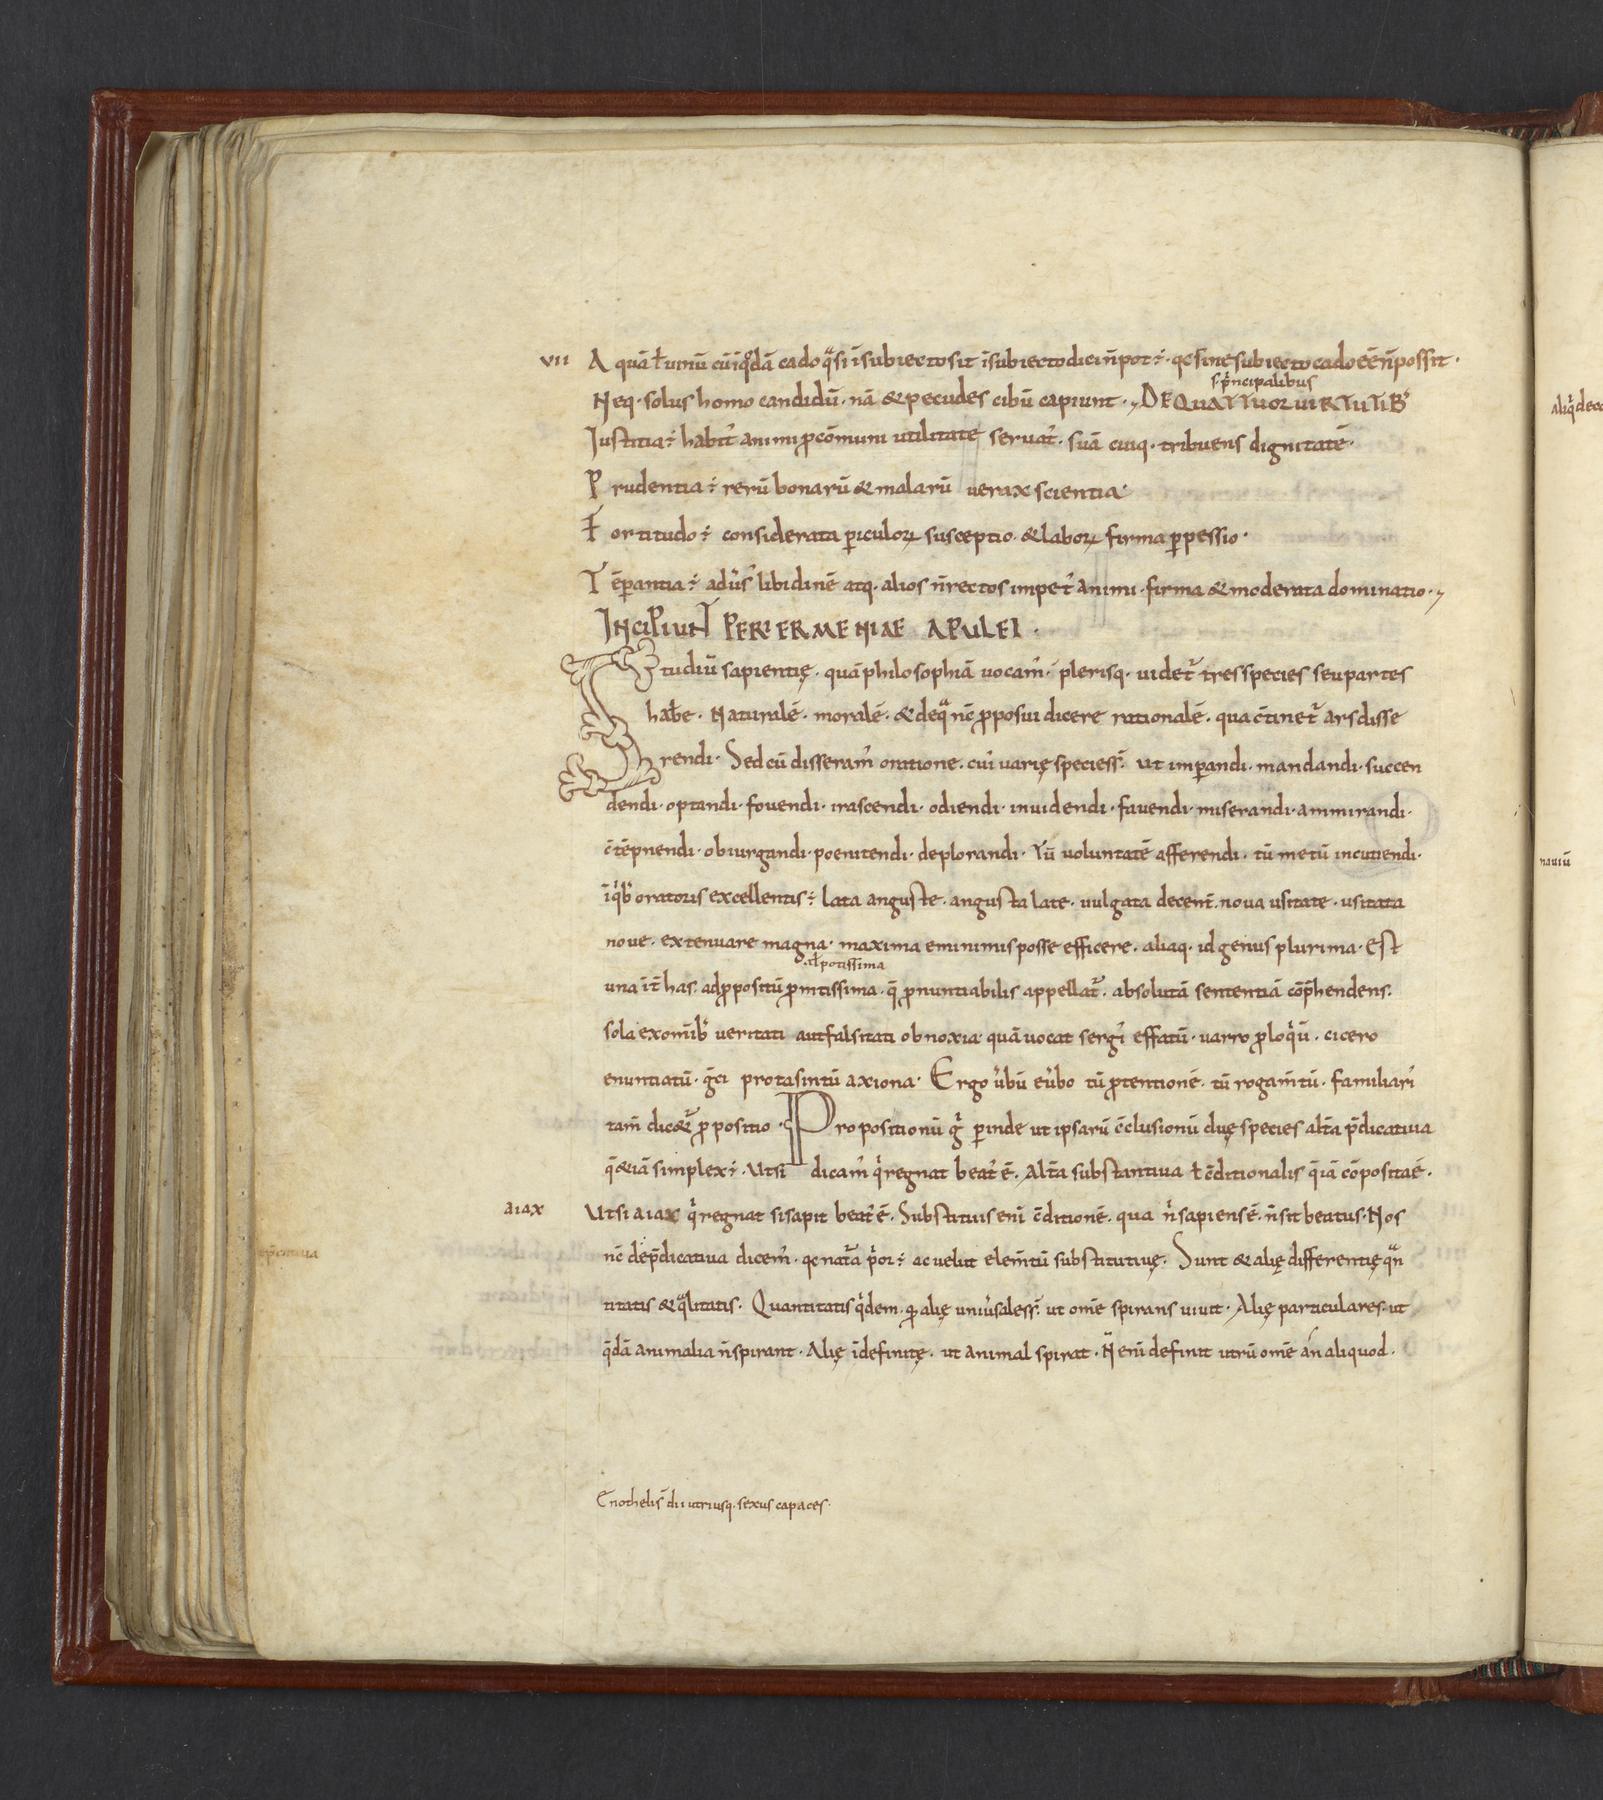 VII A quā ł unū cū iqͦdā cado qͣsi ī subiecto sit ī subiecto dici n̄ pot ÷ · qc sine subiecto cado eē n̄ possit ·
s· pͥncipalibus
Neq· solus homo candidū · nā & pecudes cibū capiunt · DE QUATTUOR UIRTUTIB;
Iustitia ÷ habit᾿ animi ꝓ cōmuni utilitate seruat᾿ · suā cuiq· tribuens dignitatē ·
Prudentia ÷ rerū bonarū & malarū uerax scientia ·
Fortitudo ÷ considerata ꝑiculoꝝ susceptio · & laboꝝ firma ꝑpessio ·
Tēꝑantia ÷ adūs᾿ libidinē atq· alios n̄ rectos impet᾿ animi · firma & moderata dominatio ·
INCIPIUNT PERIERMENIAE APULEI ·
Studiū sapientię · quā philosophiā uocam᾿ · plerisq· uidet᾿ tres species seu partes
habe · Naturalē · moralē · & de qͣ nc̄ ꝓposui dicere rationalē · qua c̄tinet᾿ ars disse
rendi · Sed cū disseram᾿ oratione · cui᾿ varię species s̄ · ut imꝑandi · mandandi · succen
dendi · optandi · fouendi · irascendi · odiendi · inuidendi · fauendi · miserandi · ammirandi ·
c̄tēpnendi · obiurgandi · poenitendi · deplorandi · Tū uoluntatē afferendi · tū metū incutiendi ·
ī qͥb᾿ oratoris excellentis ÷ lata anguste · angusta late · uulgata decent̄ · noua usitate · usitata
noue · extenuare magna · maxima e minimis posse efficere · aliaq· id genus plurima · Est
·ał potissima
una īt̄ has · ad ꝓpositū ꝓmtissima · q̄ ꝓnuntiabilis appellat᾿ · absolutā sententiā cōp̄hendens ·
sola ex omīb᾿ veritati aut falsitati obnoxia · quā uocat sergi᾿ effatū · varro ꝓloqͥū · cicero
enuntiatū · ḡci protasin tū axioma · Ergo ūbū e ūbo tū ꝓtentionē · tū rogam̄tū · familiari᾿
tam̄ dic&᾿ ꝓpositio · Propositionū gͥ ꝑinde ut ipsarū c̄clusionū duę species altā p̄dicatiua
q̄ &iā simplex ÷ · Ut si dicam᾿ qͥ regnat beat᾿ ē · Altā substantiua ł c̄ditionalis q̄ iā cōposita ē ·
aiax Ut si aiax qͥ regnat si sapit beat᾿ ē · Substituis enī c̄ditionē · qua nͥ sapiens ē · n̄ sit beatus · Nos
nc̄ de p̄dicatiua dicem᾿ · qc nat᾿a pͥor ÷ ac uelut elem̄tū substitutiuę · Sunt & alię differentię qͣn
titatis & qͣlitatis · Quantitatis qͥdem · qͥ alię uniūsales s̄ · ut om̄e spirans uiuit · Alię particulares · ut
q̄dā animalia n̄ spirant · Alię īdefinitę · ut animal spirat · N̄ enī definit utrū om̄e an aliquod ·
Enothelis dii utriusq· sexus capaces ·
aliqͥ
nauiū